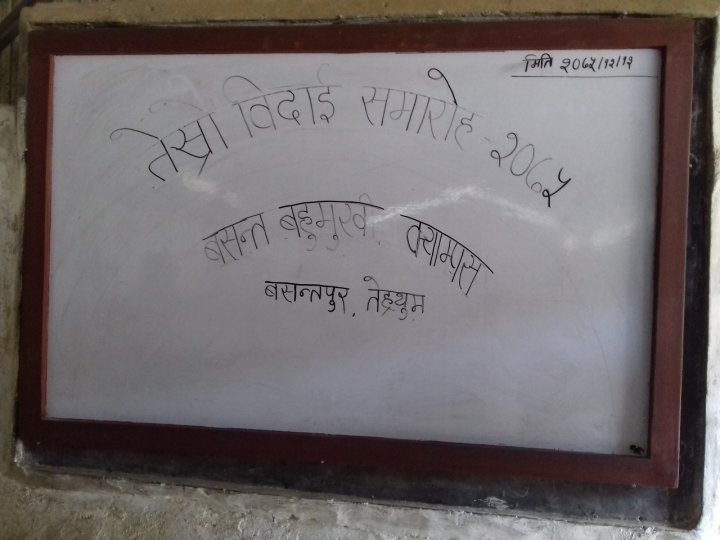 मिति २०७५/१२/१२
तेस्रो विदाई समारोह - २०७५
बसन्त बहुमुखी क्याम्पस
बसन्तपुर, तेह्रथुम